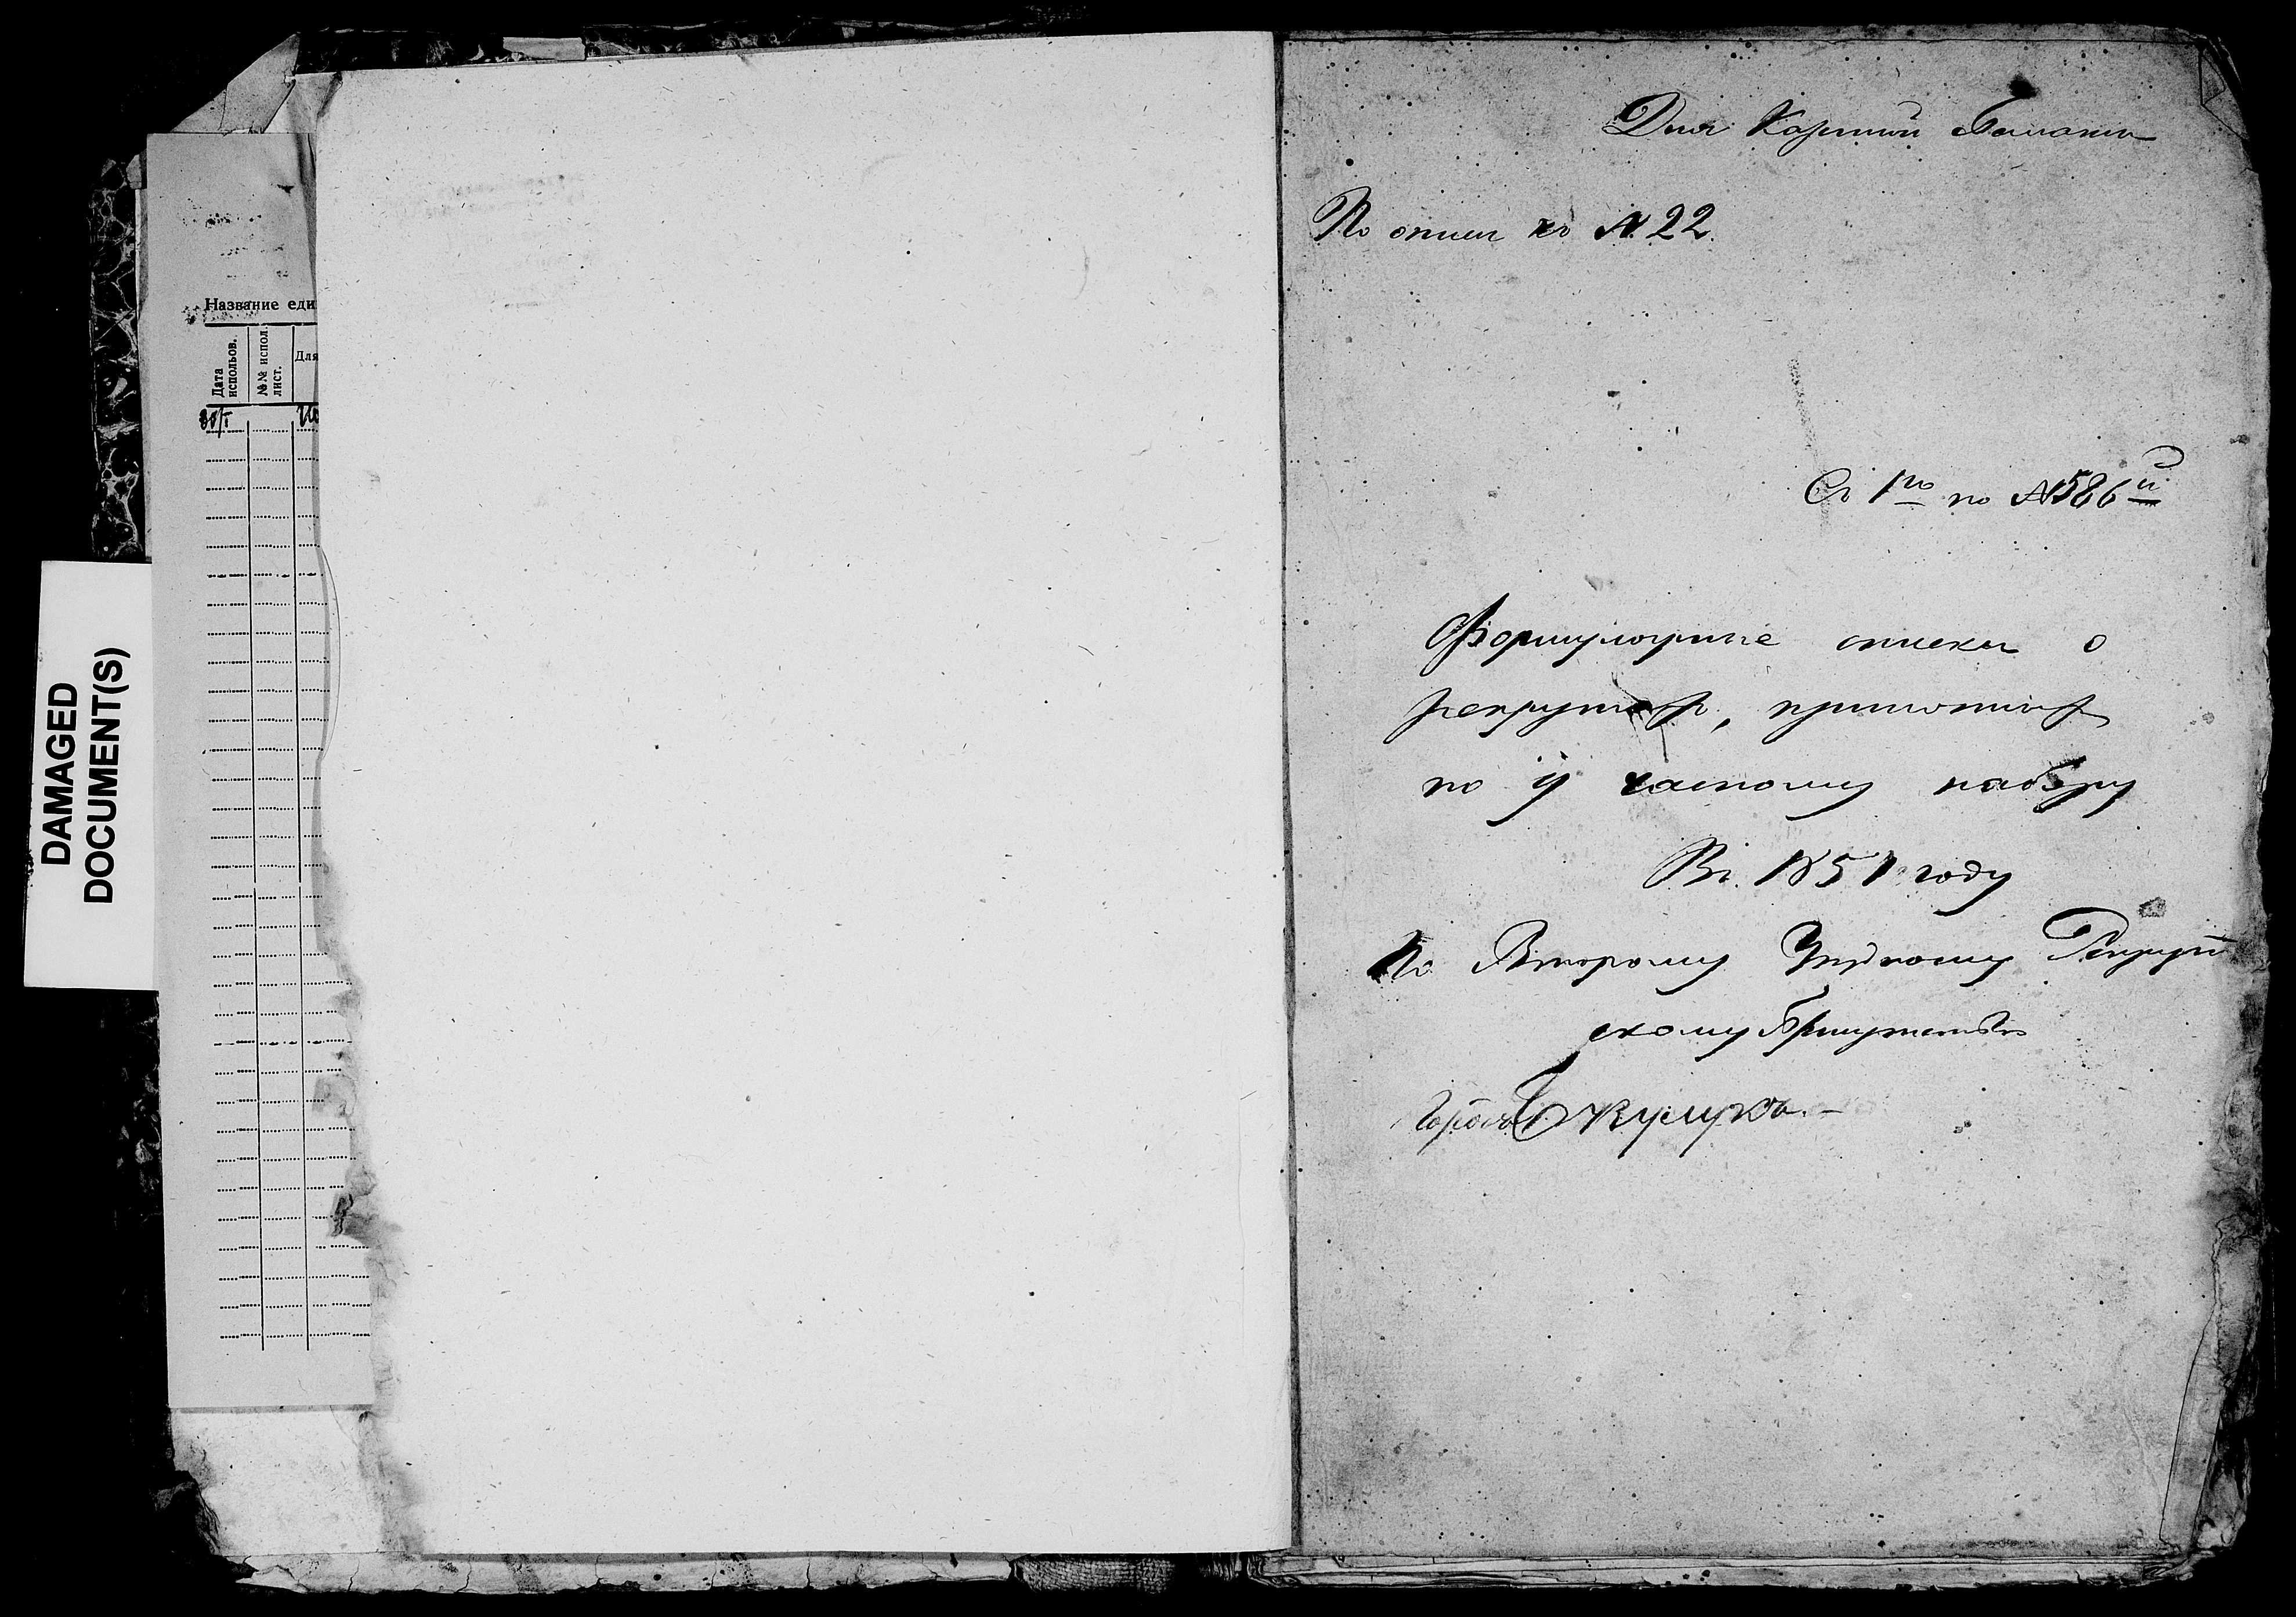 DAMAGED
DOCUMENT(S)
Название еди
Дата
использов.
№№ испол.
лист.
Для
Для Казенной Палаты
По описи №22.
Съ 1го по №586й
Формулярные списки о
рекрутахъ, принятыхъ
по частному набору
Въ 1851 году
По Второму Рекрут
скому Присутствію
Городъ